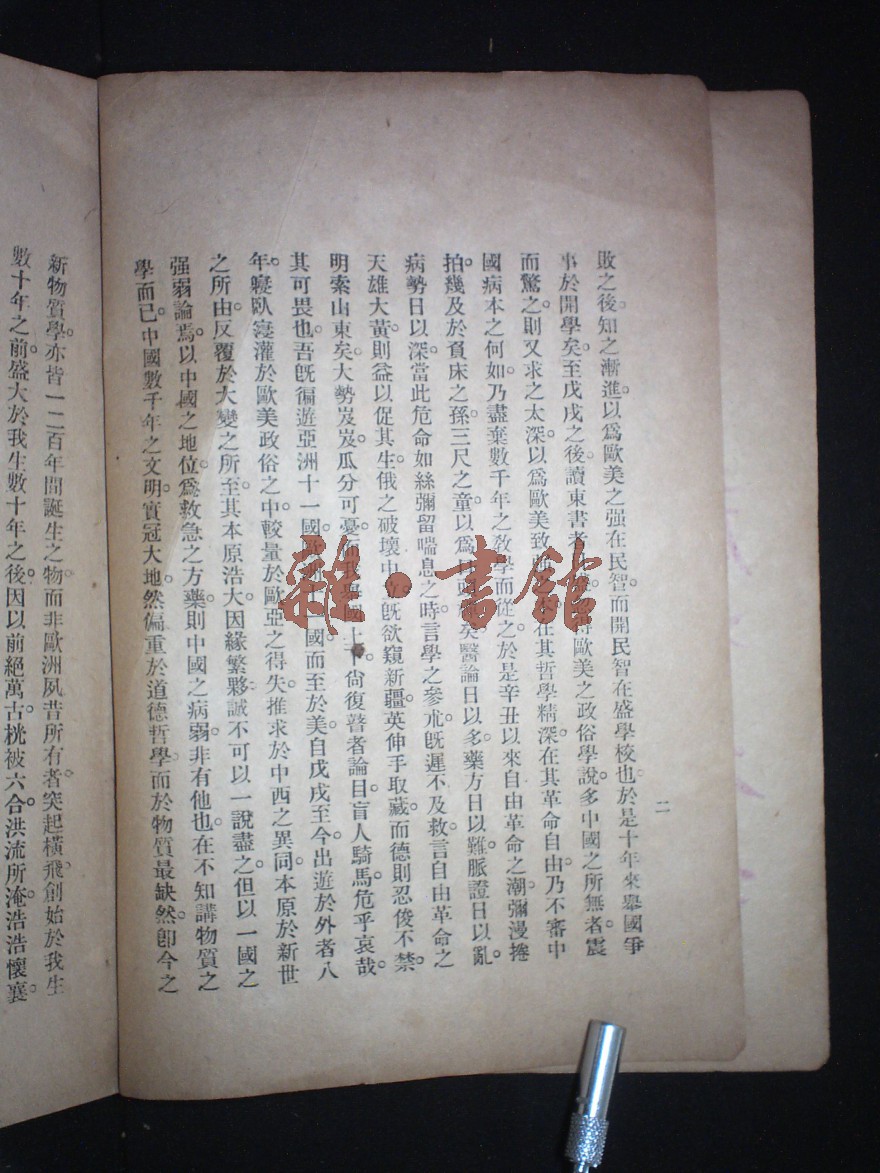 二
敗之後。知之漸進。以爲歐美之强在民智。而開民智在盛學校也。於是十年來舉國爭
事於開學矣。至戊戌之後。讀東書者歐美之政俗學說。多中國之所無者。震
而驚之。則又求之太深。以爲歐美致在其哲學精深。在其革命自由。乃不審中
國病本之何如。乃盡棄數千年之敎學而從之。於是辛丑以來。自由革命之潮。彌漫捲
拍。幾及於負床之孫。三尺之童。以爲矣。醫論日以多。藥方日以難。脈證日以亂。
病勢日以深。當此危命如絲。彌留喘息之時。言學之參朮。旣遲不及救。言自由革命之
天雄大黃。則益以促其生。俄之破壞中立。旣欲窺新疆。英伸手取藏。而德則忍俊不禁。
明索山東矣。大勢岌岌。瓜分可憂。而我舉國上下。尙復瞽者論目。盲人騎馬。危乎哀哉。
其可畏也。吾旣徧遊亞洲十一國。歐洲十一國。而至於美。自戊戌至今。出遊於外者八
年。寢臥寖灌於歐美政俗之中。較量於歐亞之得失。推求於中西之異同。本原於新世
之所由。反覆於大變之所至。其本原浩大。因緣繁夥。誠不可以一說盡之。但以一國之
强弱論焉。以中國之地位。爲救急之方藥。則中國之病弱。非有他也。在不知講物質之
學而已。中國數千年之文明。實冠大地。然偏重於道德哲學。而於物質最缺。然卽今之
新物質學。亦皆一二百年間誕生之物。而非歐洲夙昔所有者。突起橫飛。創始於我生
數十年之前。盛大於我生數十年之後。因以前絕萬古。桄被六合。洪流所淹。浩浩懷襄。
雜·書館